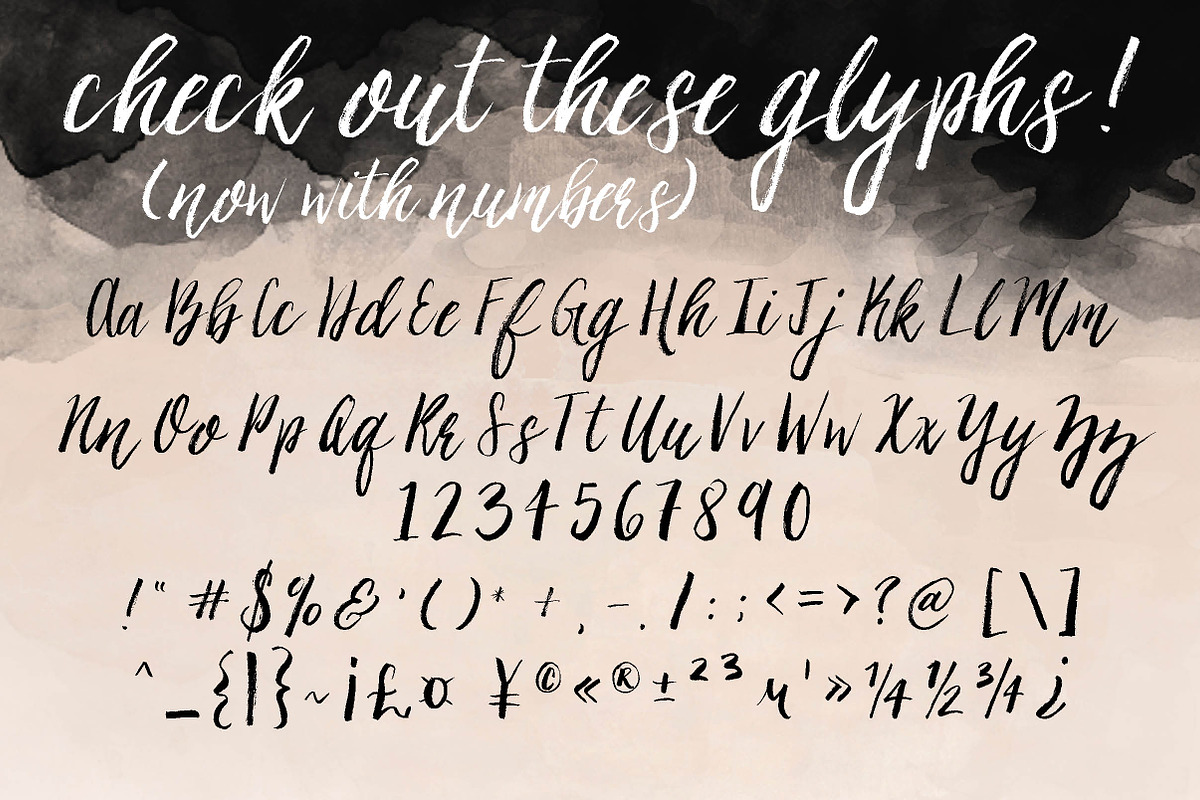 check out these glyphs!
(now with numbers)
Aa Bb Cc Dd Ee Ff Gg Hh Ii Jj Kk Ll Mm
Nn Oo Pp Qq Rr Ss Tt Uu Vv Ww Xx Yy Zz
1234567890
!" #$%&'()* + , - . / : ; < = > ? @ [ \ ]
^ _ { | } ~ ¡ £ ¤ ¥ © « ® ± ² ³ µ ' » ¼ ½ ¾ ¿